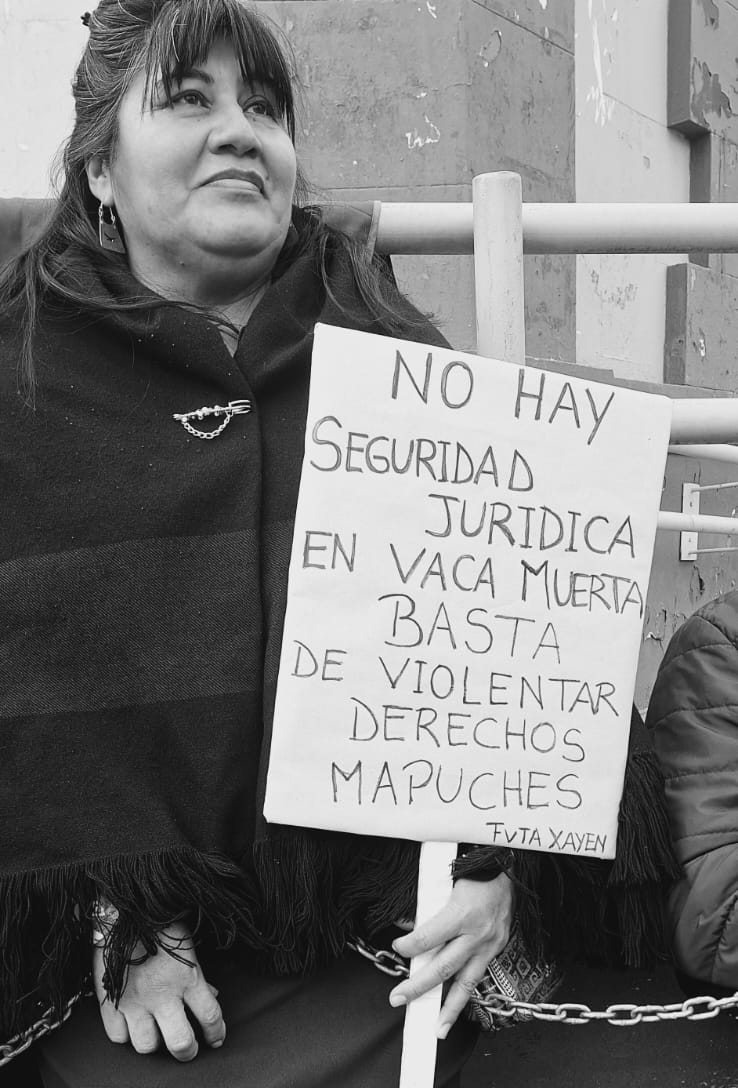 NO HAY
SEGURIDAD
JURIDICA
EN VACA MUERTA
BASTA
DE VIOLENTAR
DERECHOS
MAPUCHES
FVTA XAYEN